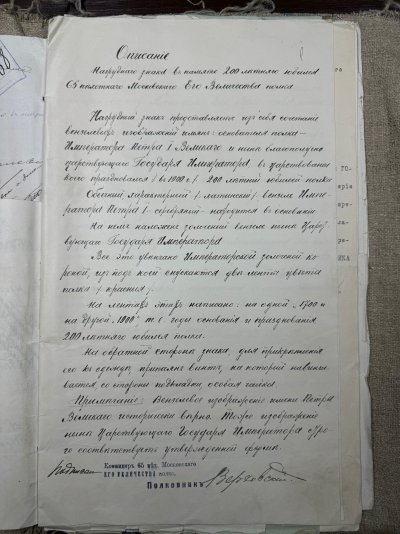 Описаніе
Нагруднаго знака въ память 200 лѣтняго юбилея
65 пѣхотнаго Московскаго Его Величества полка
Нагрудный знакъ представляетъ изъ себя сочетаніе
вензелевыхъ изображеній именъ: основателя полка -
Императора Петра I Великаго и нынѣ благополучно
царствующаго Государя Императора, въ царствованіе
коего праздновался /въ 1900 г./ 200 лѣтній юбилей полка
Обычный характерный /латинскій/ вензель Импе-
ратора Петра I - серебряный - находится въ основаніи
На немъ наложенъ золоченый вензель нынѣ Царст-
вующаго Государя Императора
Все это увѣнчано Императорской золоченой ко-
роной, изъ подъ коей спускаются двѣ ленты цвѣта
полка /красныя/.
На лентахъ этихъ написано: на одной "1700" и
на другой "1900" т. е. годы основанія и празднованія
200 лѣтняго юбилея полка.
На обратной сторонѣ знака, для прикрѣпленія
его къ одеждѣ, припаянъ винтъ, на который навинчи-
вается со стороны подкладки, особая гайка.
Примѣчаніе: Вензелевое изображеніе имени Петра
Великаго исторически вѣрно. Тоже изображеніе
нынѣ Царствующаго Государя Императора стро-
го соотвѣтствуетъ утвержденной формѣ.
Командиръ 65 пѣх. Московскаго
ЕГО ВЕЛИЧЕСТВА полка,
Полковникъ